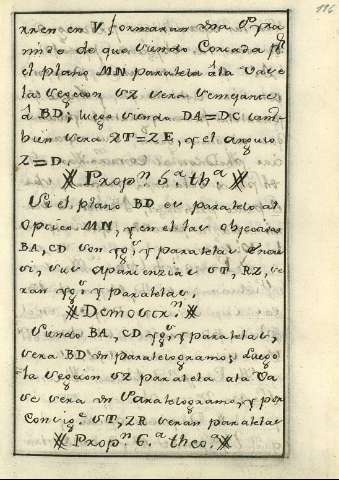 116
rren en V formaran una Pyra
mide de que siendo Cortada pr
el plano MN paralelo á la Vase
la seccion SZ sera semejante
á BD; luego siendo DA=DC tam-
bien sera ZT=ZE, y el angulo
Z=D.
Propn. 5.a th.a
Si el plano BD es paralelo al
Optico MN, y en el las objectivas
BA, CD son ygs. y paralelas entre
si, sus apariencias ST, RZ, se
ran ygs. y paralelas.
Demostrn.
Siendo BA, CD ygs. y paralelas,
sera BD un paralelogramo; Luego
la seccion SZ paralela ala Va
se sera un Paralelogramo, y por
Consige. ST, ZR seran paralelas
Propn. 6.a theo.a